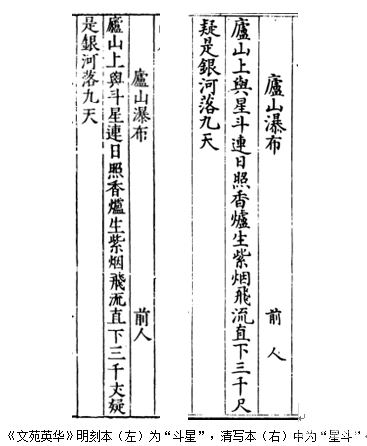 廬山瀑布 前人
廬山上與斗星連日照香爐生紫烟飛流直下三千丈疑
是銀河落九天
廬山瀑布 前人
廬山上與星斗連日照香爐生紫烟飛流直下三千尺
疑是銀河落九天
《文苑英华》明刻本（左）为“斗星”，清写本（右）中为“星斗”